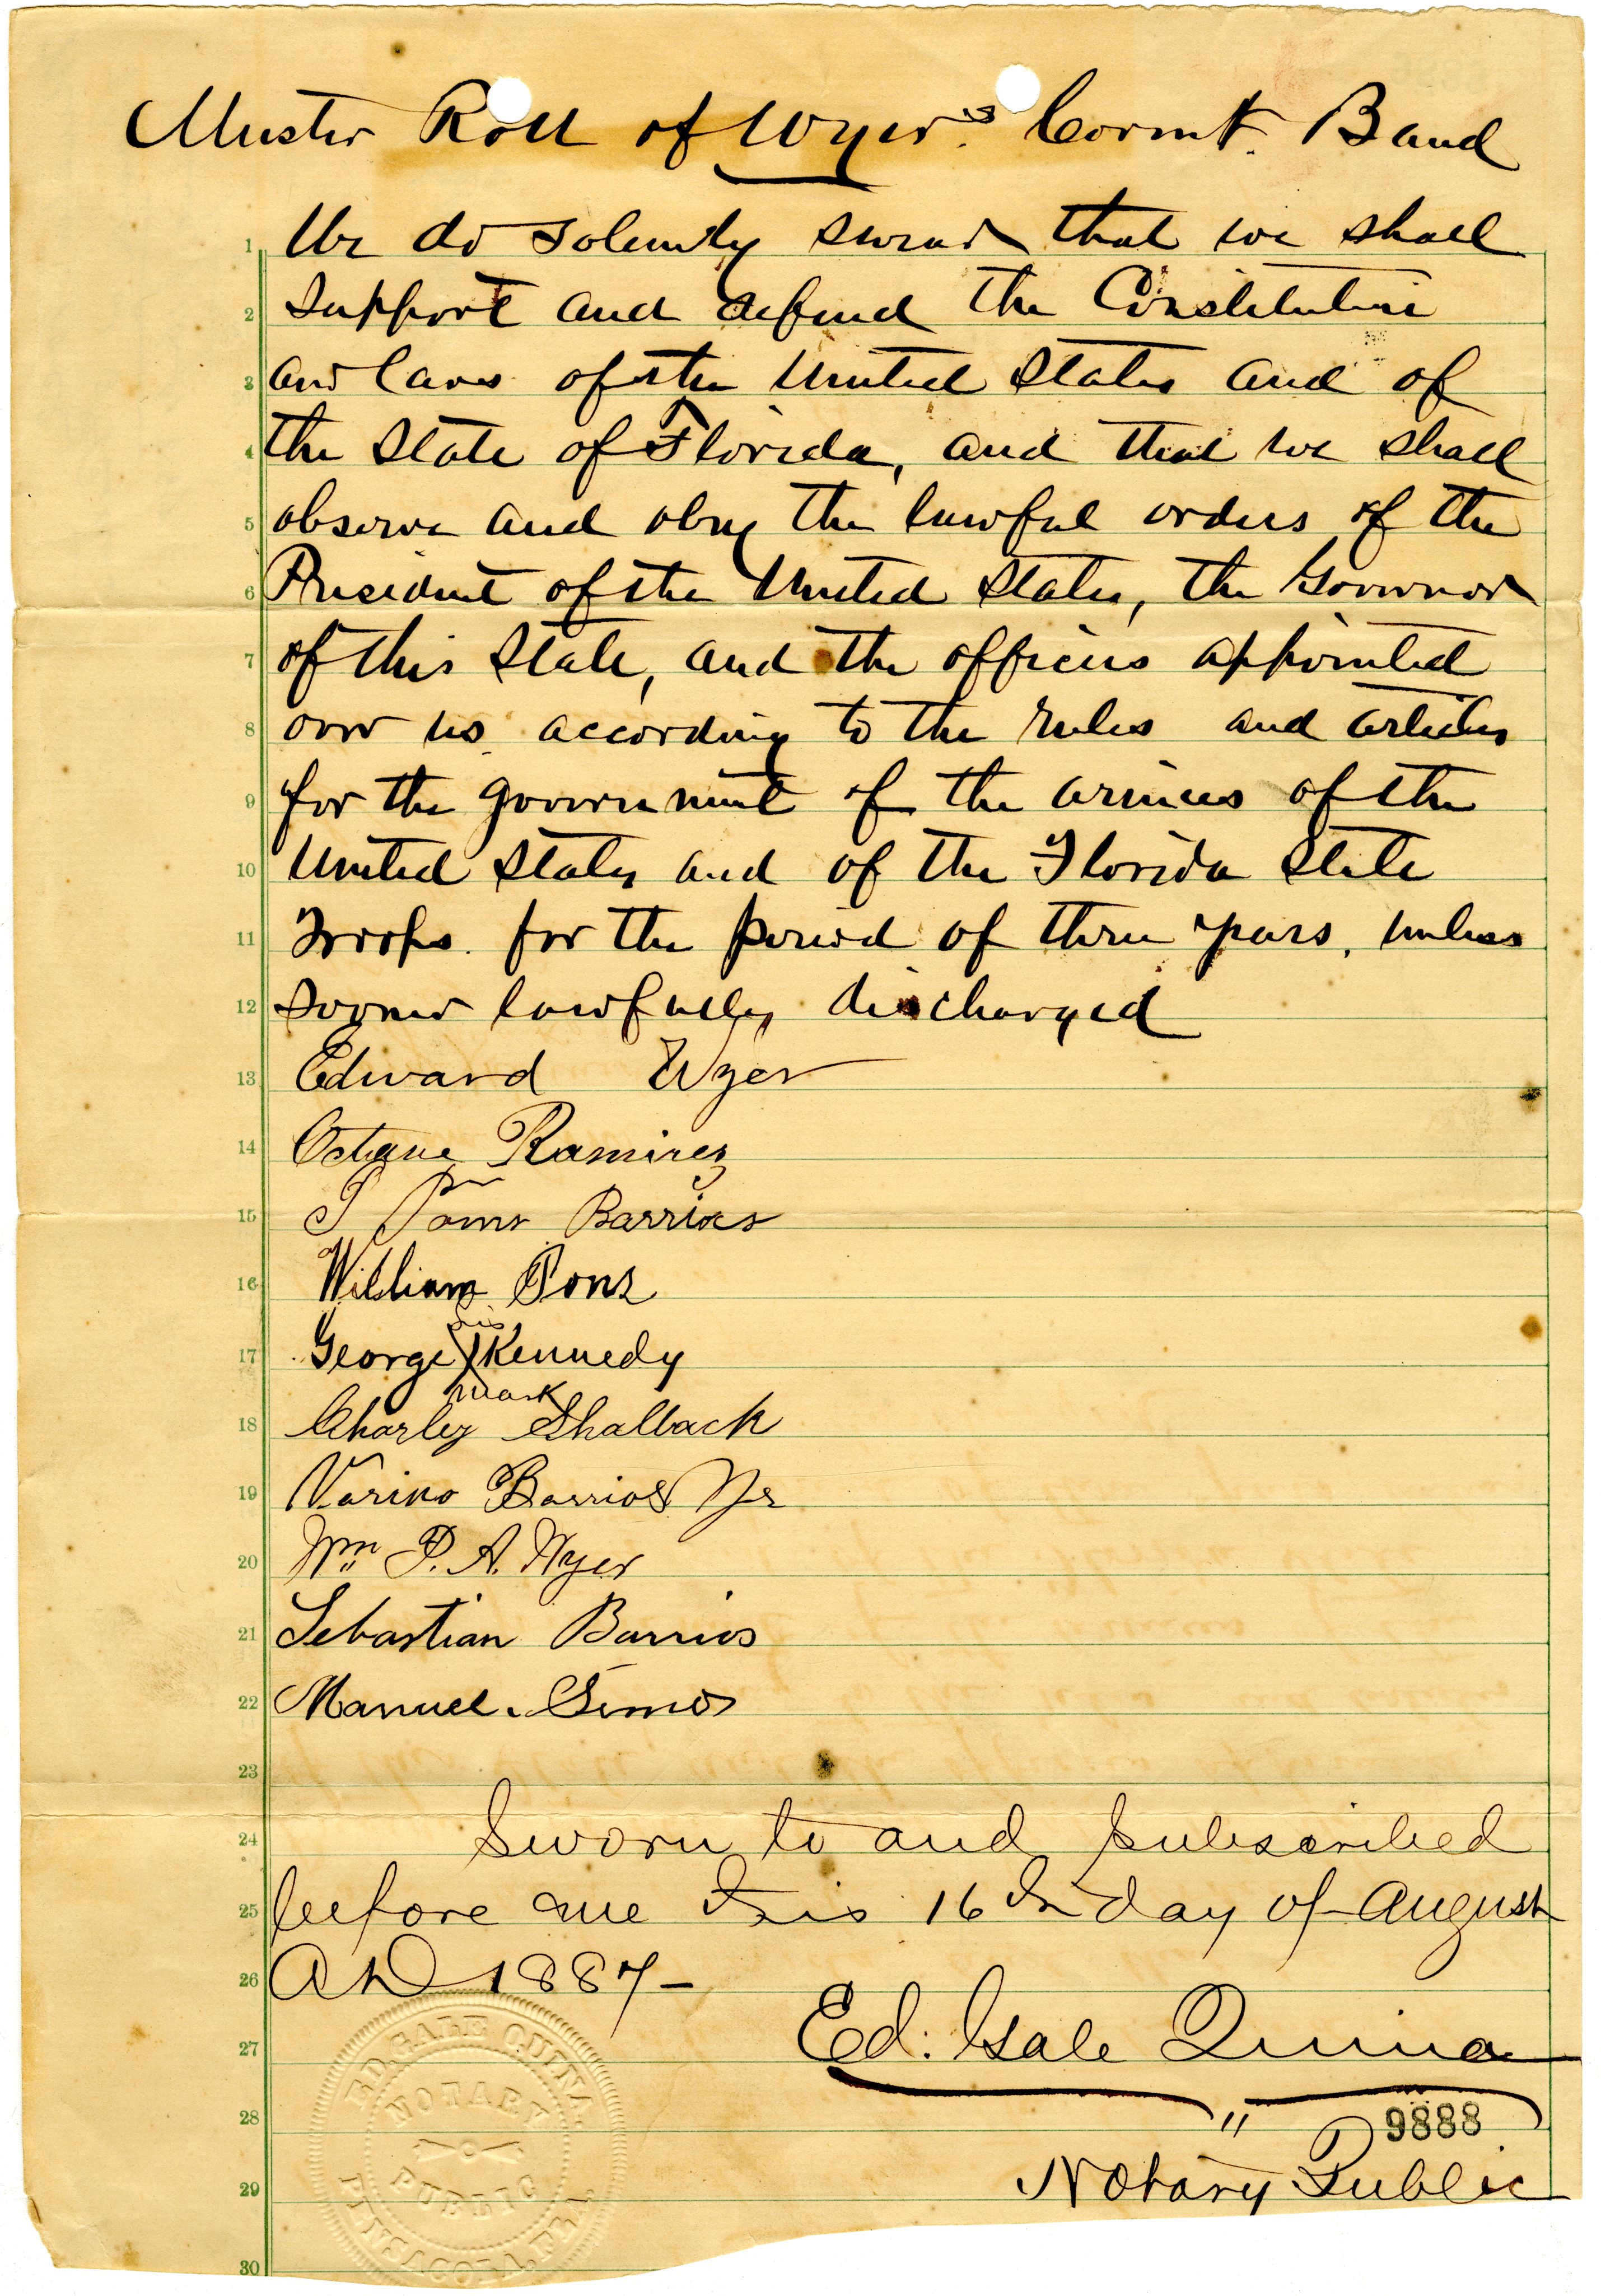 Muster Roll of Wyer's Cornt. Band
1 We do solemnly swear that we shall
2 support and defend the Constitution
3 and laws of the United States and of
4 the State of Florida, and that we shall
5 observe and obey the lawful orders of the
6 President of the United States, the Governor
7 of this State, and the officers appointed
8 over us according to the rules and articles
9 for the government of the armies of the
10 United States and of the Florida State
11 Troops. for the period of three years, unless
12 sooner lawfully discharged
13 Edward Wyer
14 Octave Ramirez
15 Barrios
16 William Pons
his
17 George X Kennedy
mark
18 Charley Shalback
19 Marino Barrios Jr
20 Wm P. A. Wyer
21 Sebastian Barrios
22 Manuel
23
24 Sworn to and subscribed
25 before me this 16th day of August
26 AD 1887-
27 Ed. Gale Quina
28 "
9888
29 Notary Public
30
ED. GALE QUINA.
NOTARY
PUBLIC
PENSACOLA, FLA.